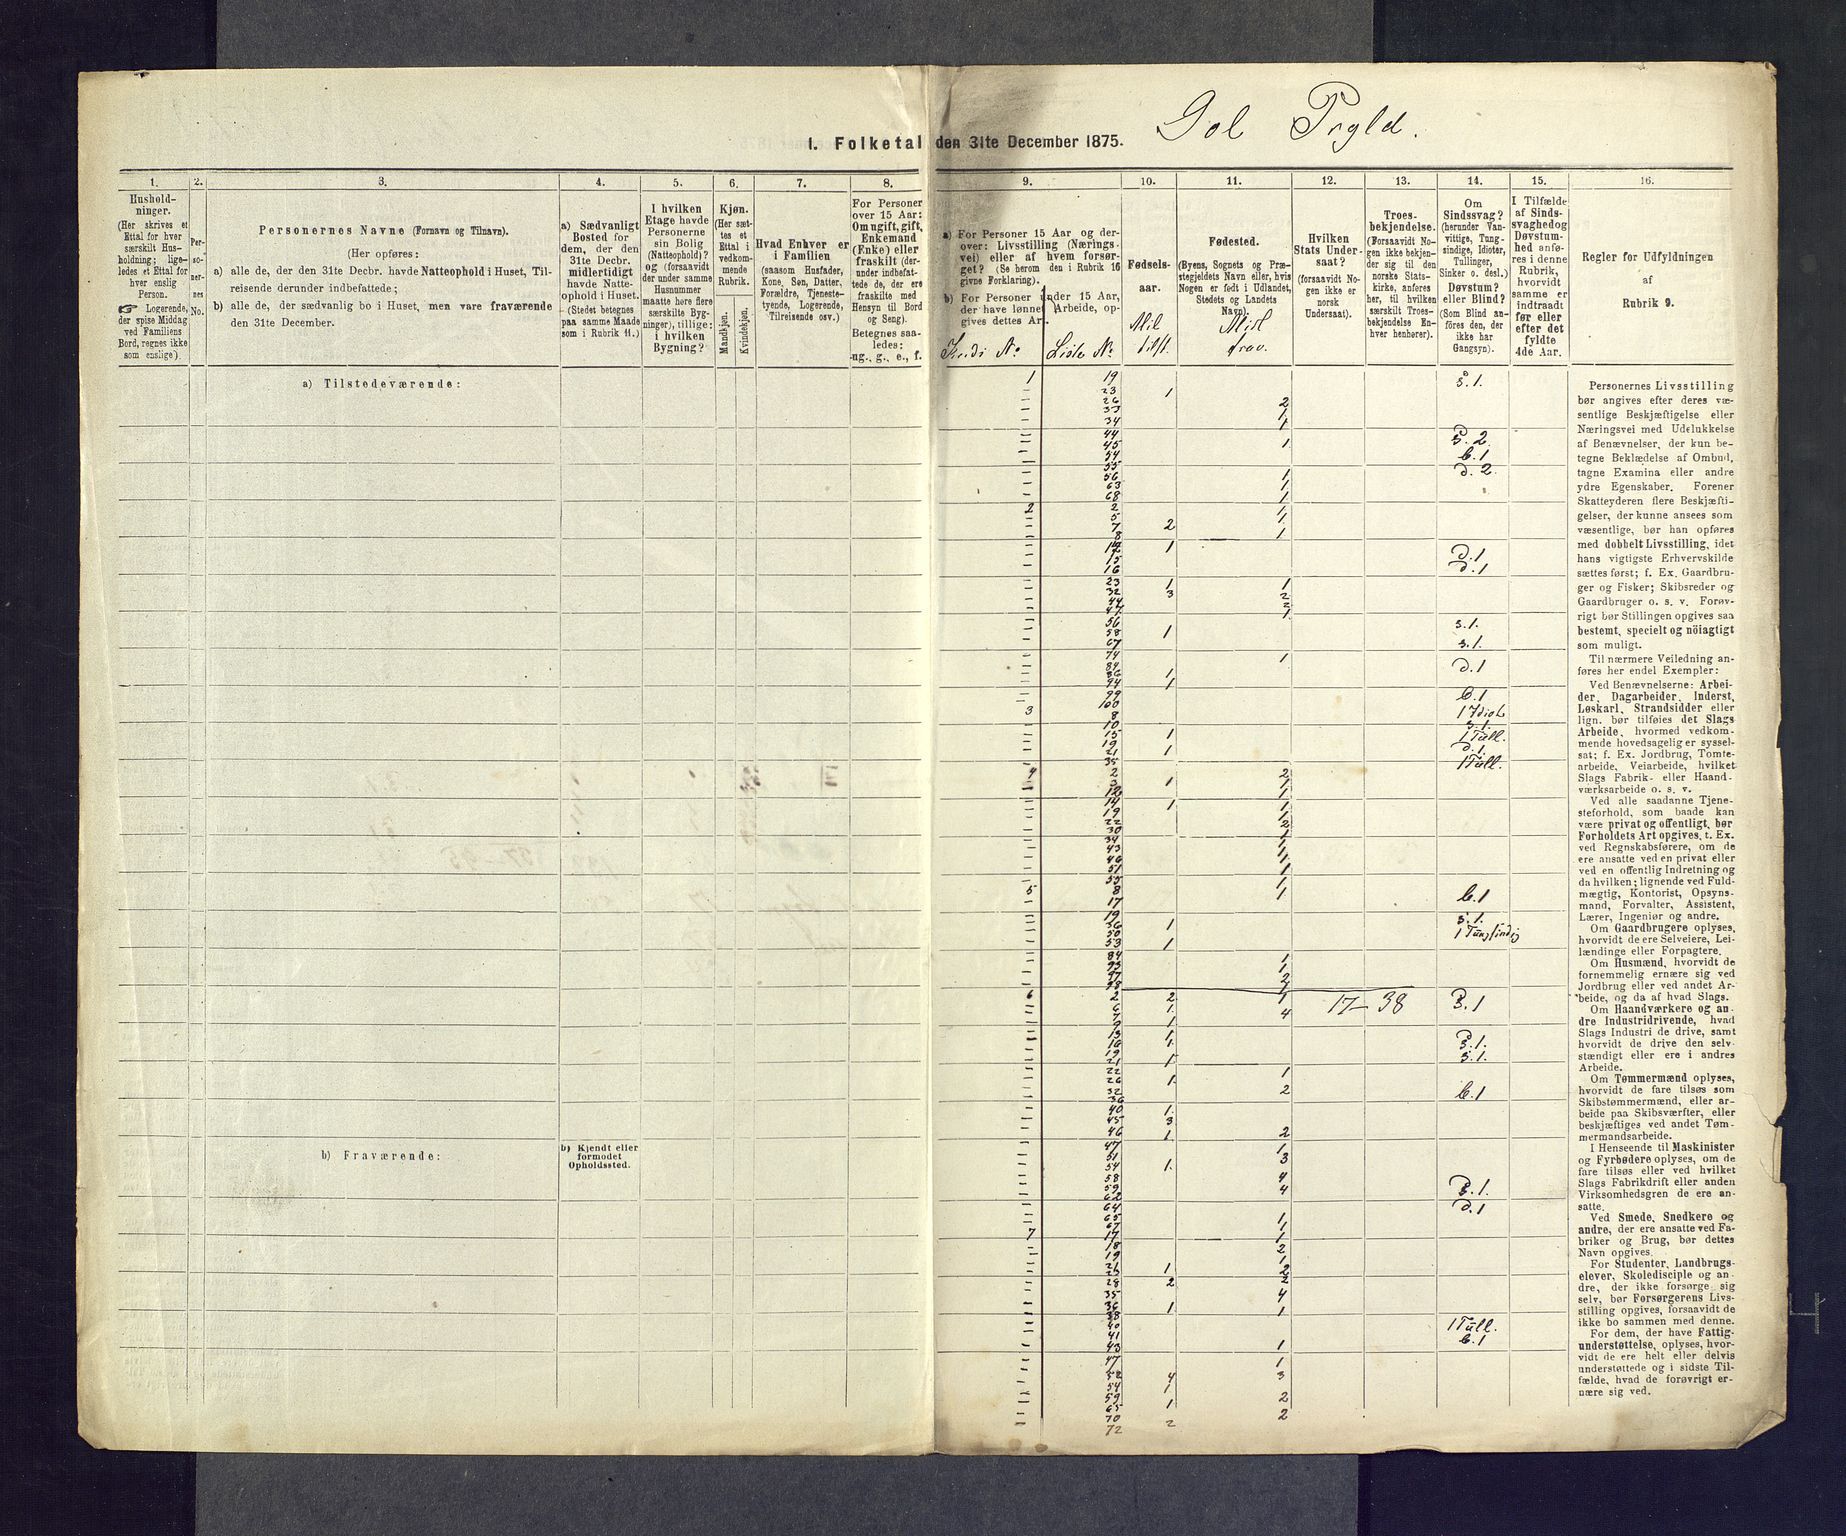 Gol Prgld.
1. Folketal den 31te December 1875.
1.
Hushold-
ninger.
(Her skrives et
Ettal for hver
særskilt Hus-
holdning; lige-
ledes et Ettal for
hver enslig
Person.
☞ Logerende,
der spise Middag
ved Familiens
Bord, regnes ikke
som enslige).
2.
Per-
so-
ner-
nes
No.
3.
Personernes Navne (Fornavn og Tilnavn).
(Her opføres:
a) alle de, der den 31te Decbr. havde Natteophold i Huset, Til-
reisende derunder indbefattede;
b) alle de, der sædvanlig bo i Huset, men vare fraværende
den 31te December.
4.
a) Sædvanligt
Bosted for
dem, der den
31te Decbr.
midlertidigt
havde Natte-
ophold i Huset.
(Stedet betegnes
paa samme Maade
som i Rubrik 11.)
5.
I hvilken
Etage havde
Personerne
sin Bolig
(Natteophold)?
og (forsaavidt
der under samme
Husnummer
maatte høre flere
særskilte Byg-
ninger), tillige:
i hvilken
Bygning?
6.
Kjøn.
(Her sæt-
tes et
Ettal i
vedkom-
mende
Rubrik.
Mandkjøn.
Kvindekjøn.
7.
Hvad Enhver er
i Familien
(saasom Husfader,
Kone, Søn, Datter,
Forældre, Tjeneste-
tyende, Logerende,
Tilreisende osv.)
8.
For Personer
over 15 Aar:
Om ugift, gift,
Enkemand
(Enke) eller
fraskilt (der-
under indbefat-
tede de, der ere
fraskilte med
Hensyn til Bord
og Seng).
Betegnes saa-
ledes:
ug., g., e., f.
9.
a) For Personer 15 Aar og der-
over: Livsstilling (Nærings-
vei) eller af hvem forsør-
get? (Se herom den i Rubrik 16
givne Forklaring).
b) For Personer under 15 Aar,
der have lønnet Arbeide, op-
gives dettes Art.
Kreds No Liste No
10.
Fødsels-
aar.
11.
Fødested.
(Byens, Sognets og Præ-
stegjeldets Navn eller, hvis
Nogen er født i Udlandet,
Stedets og Landets
Navn).
12.
Hvilken
Stats Under-
saat?
(forsaavidt No-
gen ikke er
norsk
Undersaat).
13.
Troes-
bekjendelse.
(Forsaavidt No-
gen ikke bekjen-
der sig til den
norske Stats-
kirke, anføres
her, til hvilken
særskilt Troes-
bekjendelse En-
hver henhører).
14.
Om
Sindssvag?
(herunder Van-
vittige, Tung-
sindige, Idioter,
Tullinger,
Sinker o. desl.)
Døvstum?
eller Blind?
(Som Blind an-
føres den, der
ikke har
Gangsyn).
15.
I Tilfælde
af Sinds-
svaghed og
Døvstum-
hed anfø-
res i denne
Rubrik,
hvorvidt
samme er
indtraadt
før eller
efter det
fyldte
4de Aar.
16.
Regler for Udfyldningen
af
Rubrik 9.
a) Tilstedeværende:
b) Fraværende:
b) Kjendt eller
formodet
Opholdssted.
1 19 S. 1.
23 1
26 2
33 1
34 1
44 S. 2
45 1
54 b. 1
55 d. 2
56 1
63 1
68 1
2 2 1
5 1
7 2
8 1
12 1
15 d. 1
16 d. 1
23 1 1
32 3 2
44 2
47 1
56 s. 1.
58 1
67 s. 1.
74 1
84 d. 1
86 1
94 1
99 b. 1
3 100 1 Idiot
8 s. 1.
10 1 Tull.
15 1
19 d. 1
21 1
35 1 Tull.
4 2 2
3 1 1
12 1
14 1 1
19 1
22 2
30 1
34 1
43 1
46 1
51 1
55 1
5 8 1
17 b. 1
19 s. 1.
36 1
50 1 Tungsindig
53 1
84 1
95 1
97 2
98 1
6 2 2 1 17–38 S. 1
6 1. 4
7
9 1
13 1
16 1. S. 1.
19 s. 1.
21 1
22 1
26 1
32 2 b. 1
36
40 1.
45 3
46 1 2
47 1
51 3
54 1.
58 4
59 4 S. 1.
62
64 d. 1
65 1
67 1
7 17 1
18 2
19 1
21 1 2
28 2 2
35 4
36 1 1
38
40 1 Tull.
41 b. 1
43 1
47 1
52 4 3
54 1
59 2
65 1
70 2
72 2
Personernes Livsstilling
bør angives efter deres væ-
sentlige Beskjæftigelse eller
Næringsvei med Udelukkelse
af Benævnelser, der kun be-
tegne Beklædelse af Ombud,
tagne Examina eller andre
ydre Egenskaber. Forener
Skatteyderen flere Beskjæfti-
gelser, der kunne ansees som
væsentlige, bør han opføres
med dobbelt Livsstilling, idet
hans vigtigste Erhvervskilde
sættes først; f. Ex. Gaardbru-
ger og Fisker; Skibsreder og
Gaardbruger o. s. v. Forøv-
rigt bør Stillingen opgives saa
bestemt, specielt og nöiagtigt
som muligt.
Til nærmere Veiledning an-
føres her endel Exempler:
Ved Benævnelserne: Arbei-
der, Dagarbeider, Inderst,
Løskarl, Strandsidder eller
lign. bør tilføies det Slags
Arbeide, hvormed vedkom-
mende hovedsagelig er syssel-
sat; f. Ex. Jordbrug, Tomte-
arbeide, Veiarbeide, hvilket
Slags Fabrik- eller Haand-
værksarbeide o. s. v.
Ved alle saadanne Tjene-
steforhold, som baade kan
være privat og offentligt, bør
Forholdets Art opgives, t. Ex.
ved Regnskabsførere, om de
ere ansatte ved en privat eller
ved en offentlig Indretning og
da hvilken; lignende ved Fuld-
mægtig, Kontorist, Opsyns-
mand, Forvalter, Assistent,
Lærer, Ingeniør og andre.
Om Gaardbrugere oplyses,
hvorvidt de ere Selveiere, Lei-
lændinge eller Forpagtere.
Om Husmænd, hvorvidt de
fornemmelig ernære sig ved
Jordbrug eller ved andet Ar-
beide, og da af hvad Slags.
Om Haandværkere og an-
dre Industridrivende, hvad
Slags Industri de drive, samt
hvorvidt de drive den selv-
stændigt eller ere i andres
Arbeide.
Om Tømmermænd oplyses,
hvorvidt de fare tilsøs som
Skibstømmermænd, eller ar-
beide paa Skibsværfter, eller
beskjæftiges ved andet Tøm-
mermandsarbeide.
I Henseende til Maskinister
og Fyrbødere oplyses, om de
fare tilsøs eller ved hvilket
Slags Fabrikdrift eller anden
Virksomhedsgren de ere an-
satte.
Ved Smede, Snedkere og
andre, der ere ansatte ved Fa-
briker og Brug, bør dettes
Navn opgives.
For Studenter, Landbrugs-
elever, Skoledisciple og an-
dre, der ikke forsørge sig
selv, bør Forsørgerens Livs-
stilling opgives, forsaavidt de
ikke bo sammen med denne.
For dem, der have Fattig-
understøttelse, oplyses, hvor-
vidt de ere helt eller delvis
understøttede og i sidste Til-
fælde, hvad de forøvrigt er-
nære sig ved.